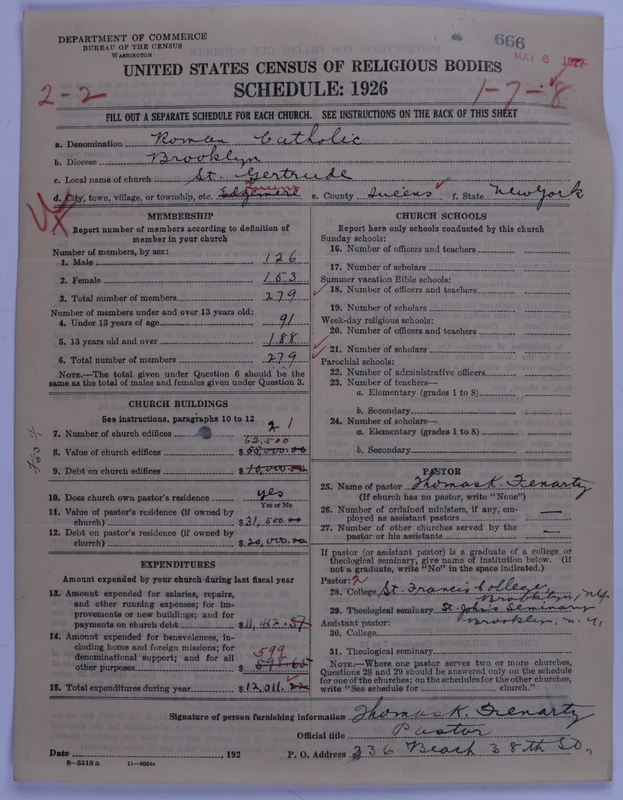 DEPARTMENT OF COMMERCE
BUREAU OF THE CENSUS
WASHINGTON
666
MAY 6 1927
UNITED STATES CENSUS OF RELIGIOUS BODIES
SCHEDULE: 1926
2-2
1-7-8
FILL OUT A SEPARATE SCHEDULE FOR EACH CHURCH. SEE INSTRUCTIONS ON THE BACK OF THIS SHEET
a. Denomination Roman Catholic
b. Diocese Brooklyn
c. Local name of church St. Gertrude
Queens
d. City, town, village, or township, etc. Edgemere e. County Queens f. State New York
MEMBERSHIP
Report number of members according to definition of
member in your church
Number of members, by sex:
1. Male 126
2. Female 153
3. Total number of members 279
Number of members under and over 13 years old:
4. Under 13 years of age 91
5. 13 years old and over 188
6. Total number of members 279
NOTE.—The total given under Question 6 should be the
same as the total of males and females given under Question 3.
CHURCH BUILDINGS
See instructions, paragraphs 10 to 12
7. Number of church edifices 2 1
8. Value of church edifices $55,000.00
9. Debt on church edifices $10,000.00
10. Does church own pastor's residence yes
Yes or No
11. Value of pastor's residence (if owned by
church) $31,500.00
12. Debt on pastor's residence (if owned by
church) $20,000.00
EXPENDITURES
Amount expended by your church during last fiscal year
13. Amount expended for salaries, repairs,
and other running expenses; for im-
provements or new buildings; and for
payments on church debt $11,412.57
14. Amount expended for benevolences, in-
cluding home and foreign missions; for
denominational support; and for all
599
other purposes $598.65
15. Total expenditures during year $12,011.22
CHURCH SCHOOLS
Report here only schools conducted by this church
Sunday schools:
16. Number of officers and teachers
17. Number of scholars
Summer vacation Bible schools:
18. Number of officers and teachers
19. Number of scholars
Week-day religious schools:
20. Number of officers and teachers
21. Number of scholars
Parochial schools:
22. Number of administrative officers
23. Number of teachers—
a. Elementary (grades 1 to 8)
b. Secondary
24. Number of scholars—
a. Elementary (grades 1 to 8)
b. Secondary
PASTOR
25. Name of pastor Thomas K.
(If church has no pastor, write "None")
26. Number of ordained ministers, if any, em-
ployed as assistant pastors —
27. Number of other churches served by the
pastor or his assistants —
If pastor (or assistant pastor) is a graduate of a college or
theological seminary, give name of institution below. (If
not a graduate, write "No" in the space indicated.)
Pastor: 2
28. College St. Francis College
Brooklyn, N.Y.
29. Theological seminary St. John's Seminary
Brooklyn, N.Y.
Assistant pastor:
30. College
31. Theological seminary
NOTE.—Where one pastor serves two or more churches,
Questions 28 and 29 should be answered only on the schedule
for one of the churches; on the schedules for the other churches,
write "See schedule for church."
Signature of person furnishing information Thomas K.
Official title Pastor
Date , 192 P. O. Address 336 Beach 38th St.
8-5519 a 11-9054a